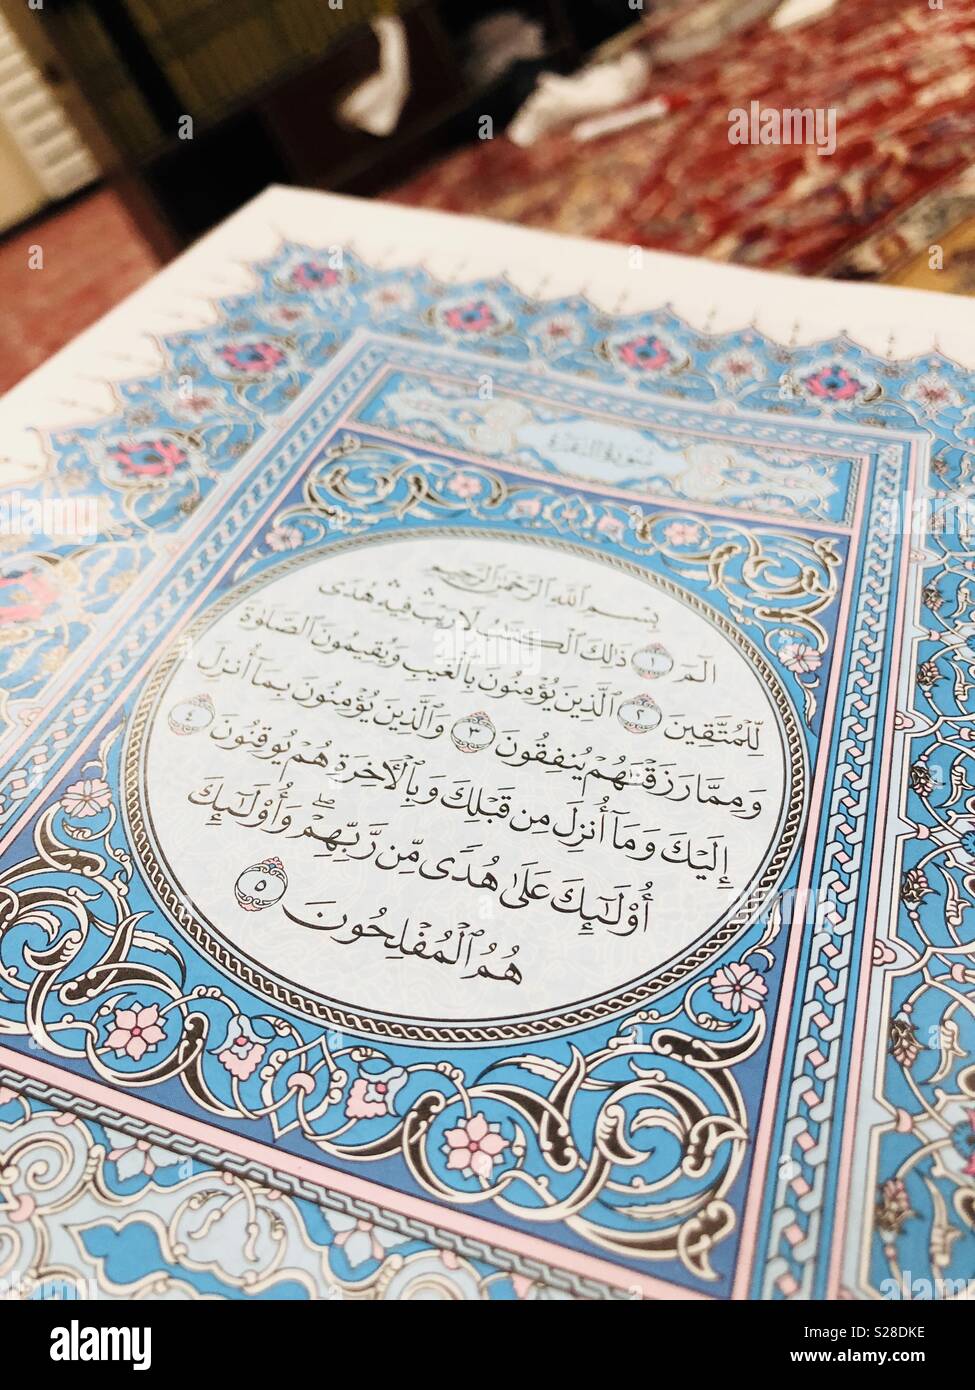 سُورَةُ البَقَرَةِ
بِسْمِ ٱللَّهِ ٱلرَّحْمَٰنِ ٱلرَّحِيمِ
الٓمٓ ١ ذَٰلِكَ ٱلْكِتَٰبُ لَا رَيْبَ ۛ فِيهِ ۛ هُدًى
لِّلْمُتَّقِينَ ٢ ٱلَّذِينَ يُؤْمِنُونَ بِٱلْغَيْبِ وَيُقِيمُونَ ٱلصَّلَوٰةَ
وَمِمَّا رَزَقْنَٰهُمْ يُنفِقُونَ ٣ وَٱلَّذِينَ يُؤْمِنُونَ بِمَآ أُنزِلَ
إِلَيْكَ وَمَآ أُنزِلَ مِن قَبْلِكَ وَبِٱلْأَخِرَةِ هُمْ يُوقِنُونَ ٤
أُو۟لَٰٓئِكَ عَلَىٰ هُدًى مِّن رَّبِّهِمْ ۖ وَأُو۟لَٰٓئِكَ
هُمُ ٱلْمُفْلِحُونَ ٥
alamy
a
Image ID: S28DKE
www.alamy.com